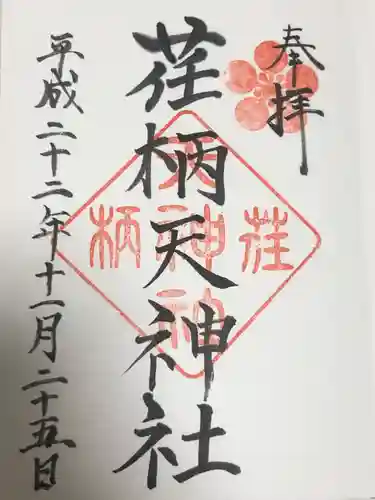 奉拝
荏柄天神社
荏柄天神
平成二十二年十一月二十五日